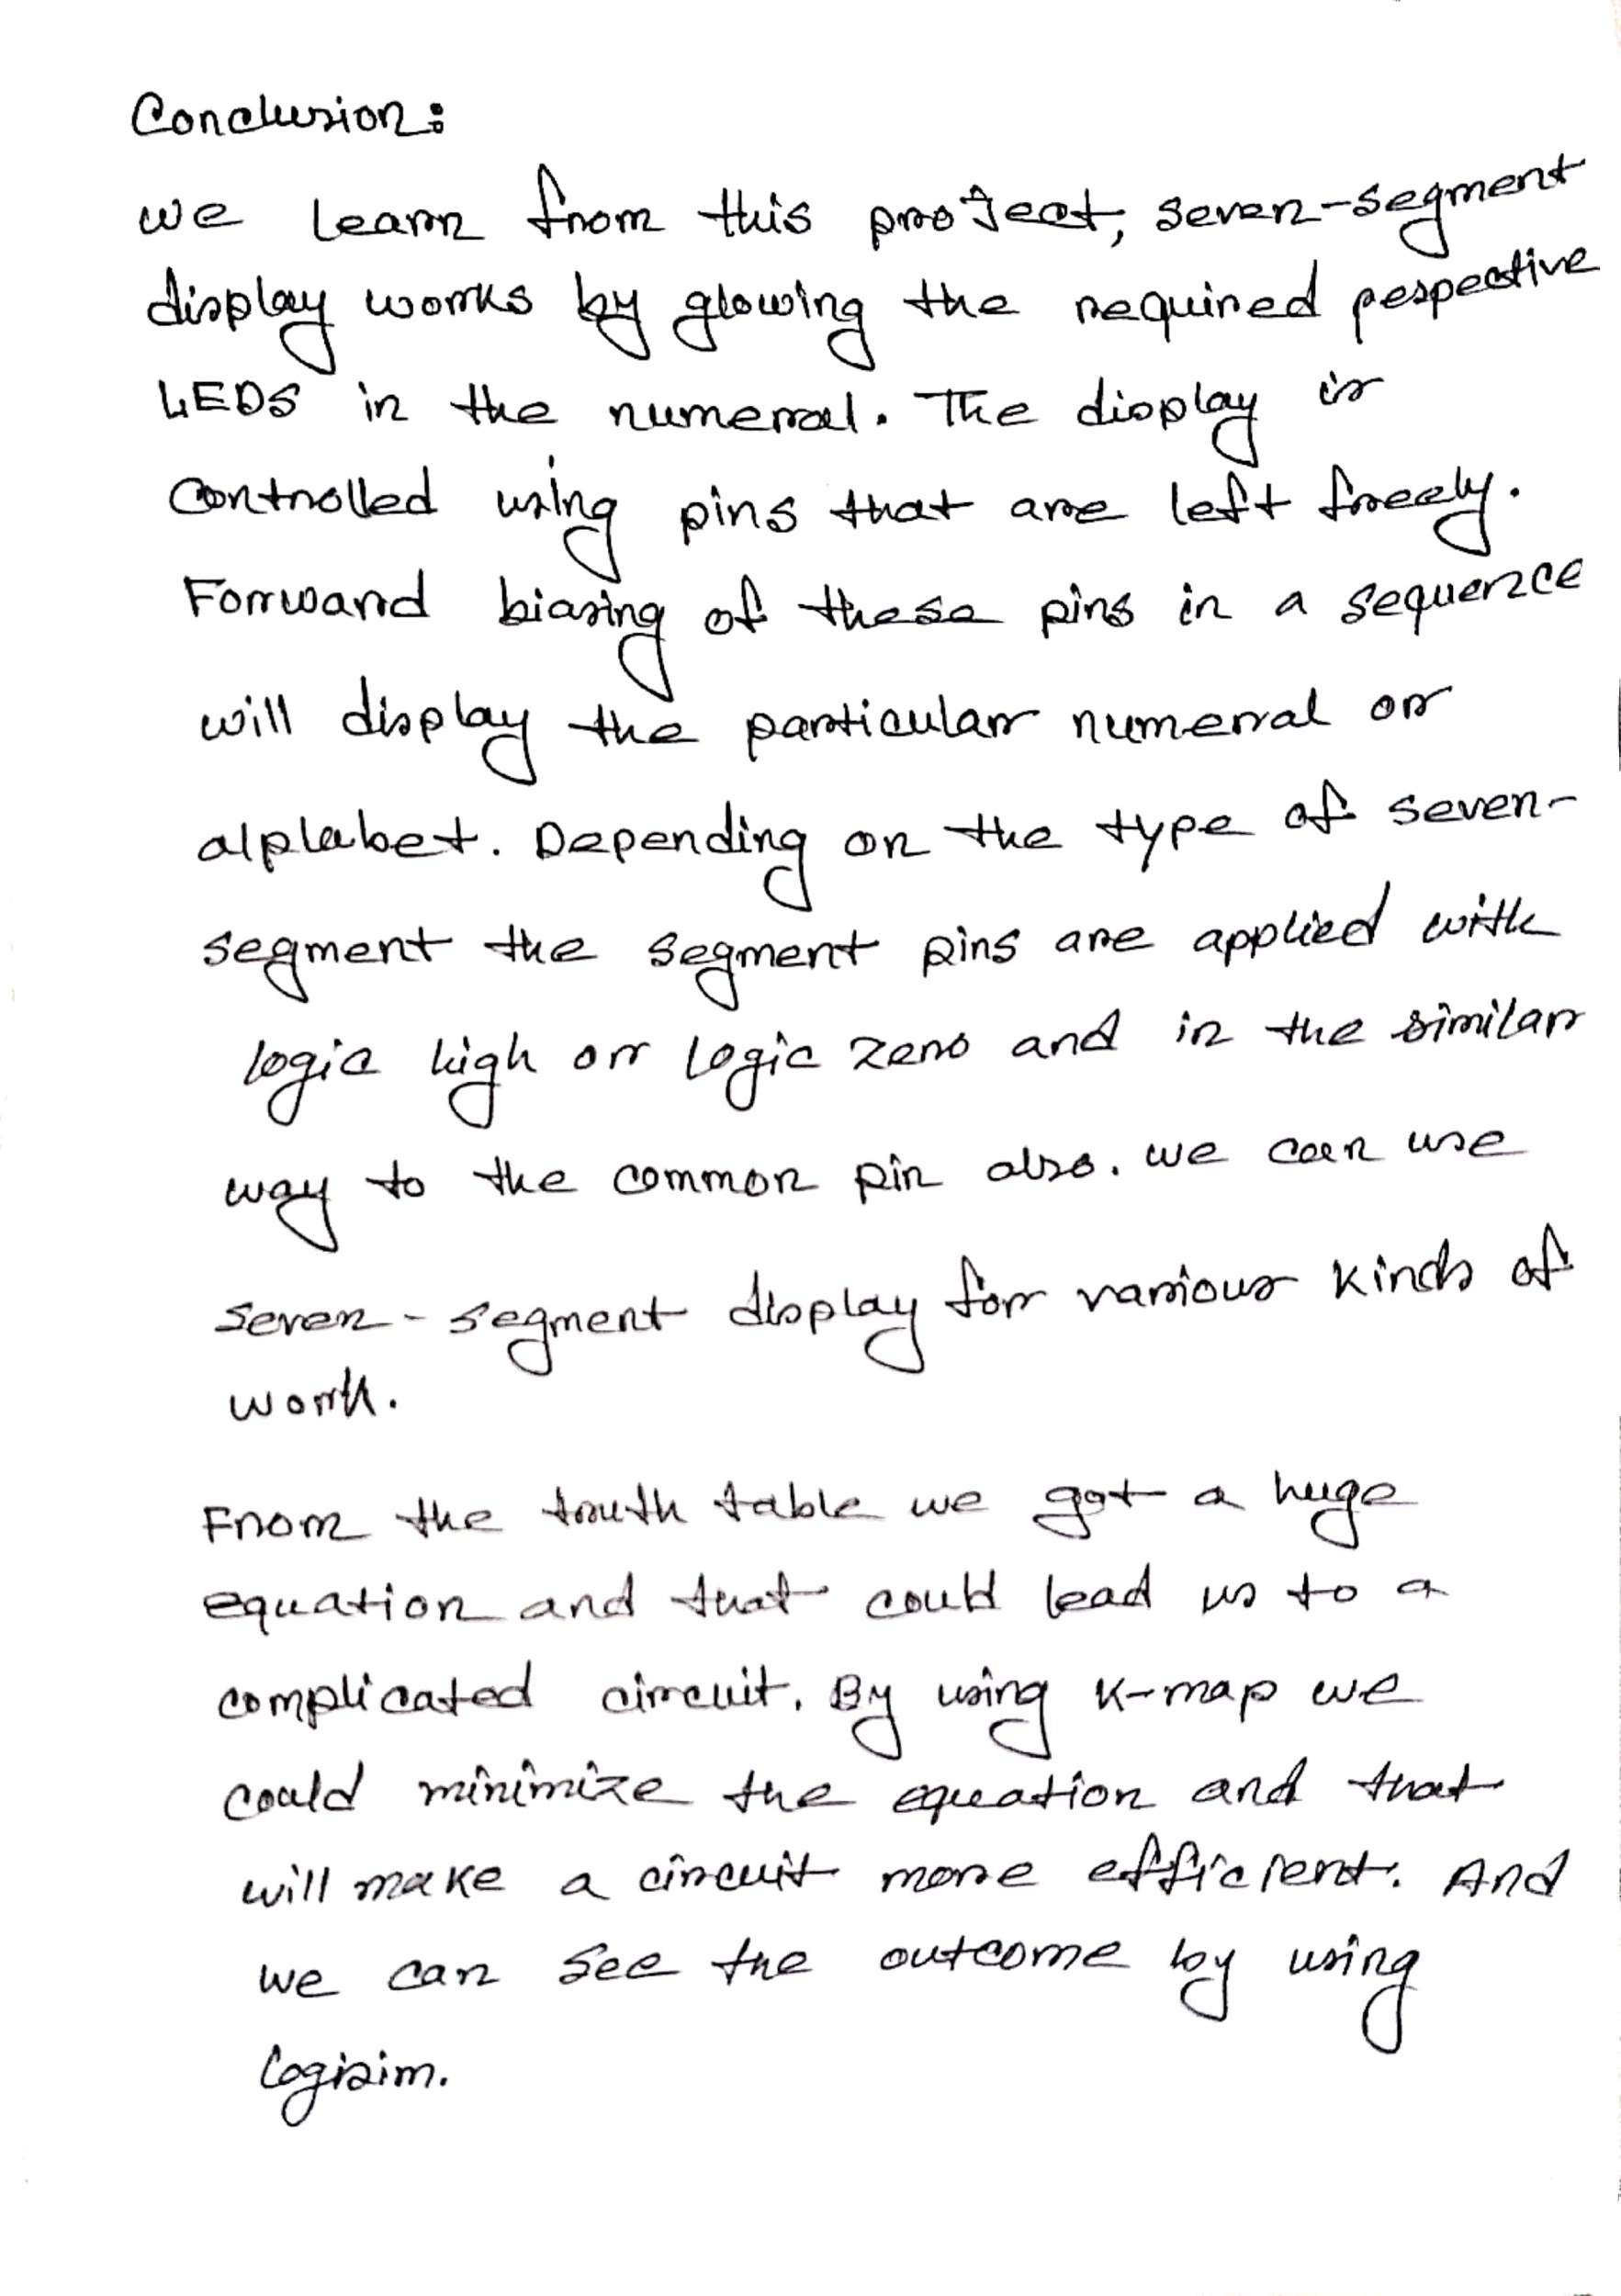 Conclusion:
we learn from this project, seven-segment
display works by glowing the required pespective
LEDS in the numeral. The display is
controlled using pins that are left freely.
Forward biasing of these pins in a sequence
will display the particular numeral or
alplabet. Depending on the type of seven-
segment the segment pins are applied with
logic high or logic zero and in the similar
way to the common pin also. we can use
seven-segment display for various kinds of
work.
From the truth table we got a huge
equation and that could lead us to a
complicated circuit. By using K-map we
could minimize the equation and that
will make a circuit more efficient. And
we can see the outcome by using
logisim.